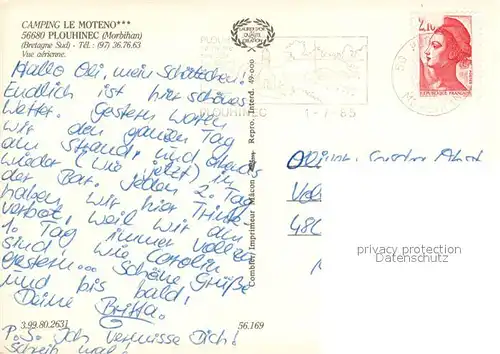 CAMPING LE MOTENO***
56680 PLOUHINEC (Morbihan)
(Bretagne Sud) - Tél.: (97) 36.76.63
Vue aérienne.
Hallo Oli, mein Schätzchen!
Endlich ist hier schönes
Wetter. Gestern waren
wir den ganzen Tag
am Strand, und abends
wieder (wie jetzt) in
der Bar. Jeden 2. Tag
haben wir hier Trink-
verbot, weil wir am
1. Tag immer voll
sind, wie Carolin
gestern... Schöne Grüße
und bis bald!
Deine Britta.
P.S. Ich vermisse Dich!
Schreib mal!
3.99.80.2631
56.169
Combier Imprimeur Mâcon
Repro. Interd. 49-000
PLOUHINEC
1-7-85
2,10
REPUBLIQUE FRANÇAISE
privacy protection
privacy protection